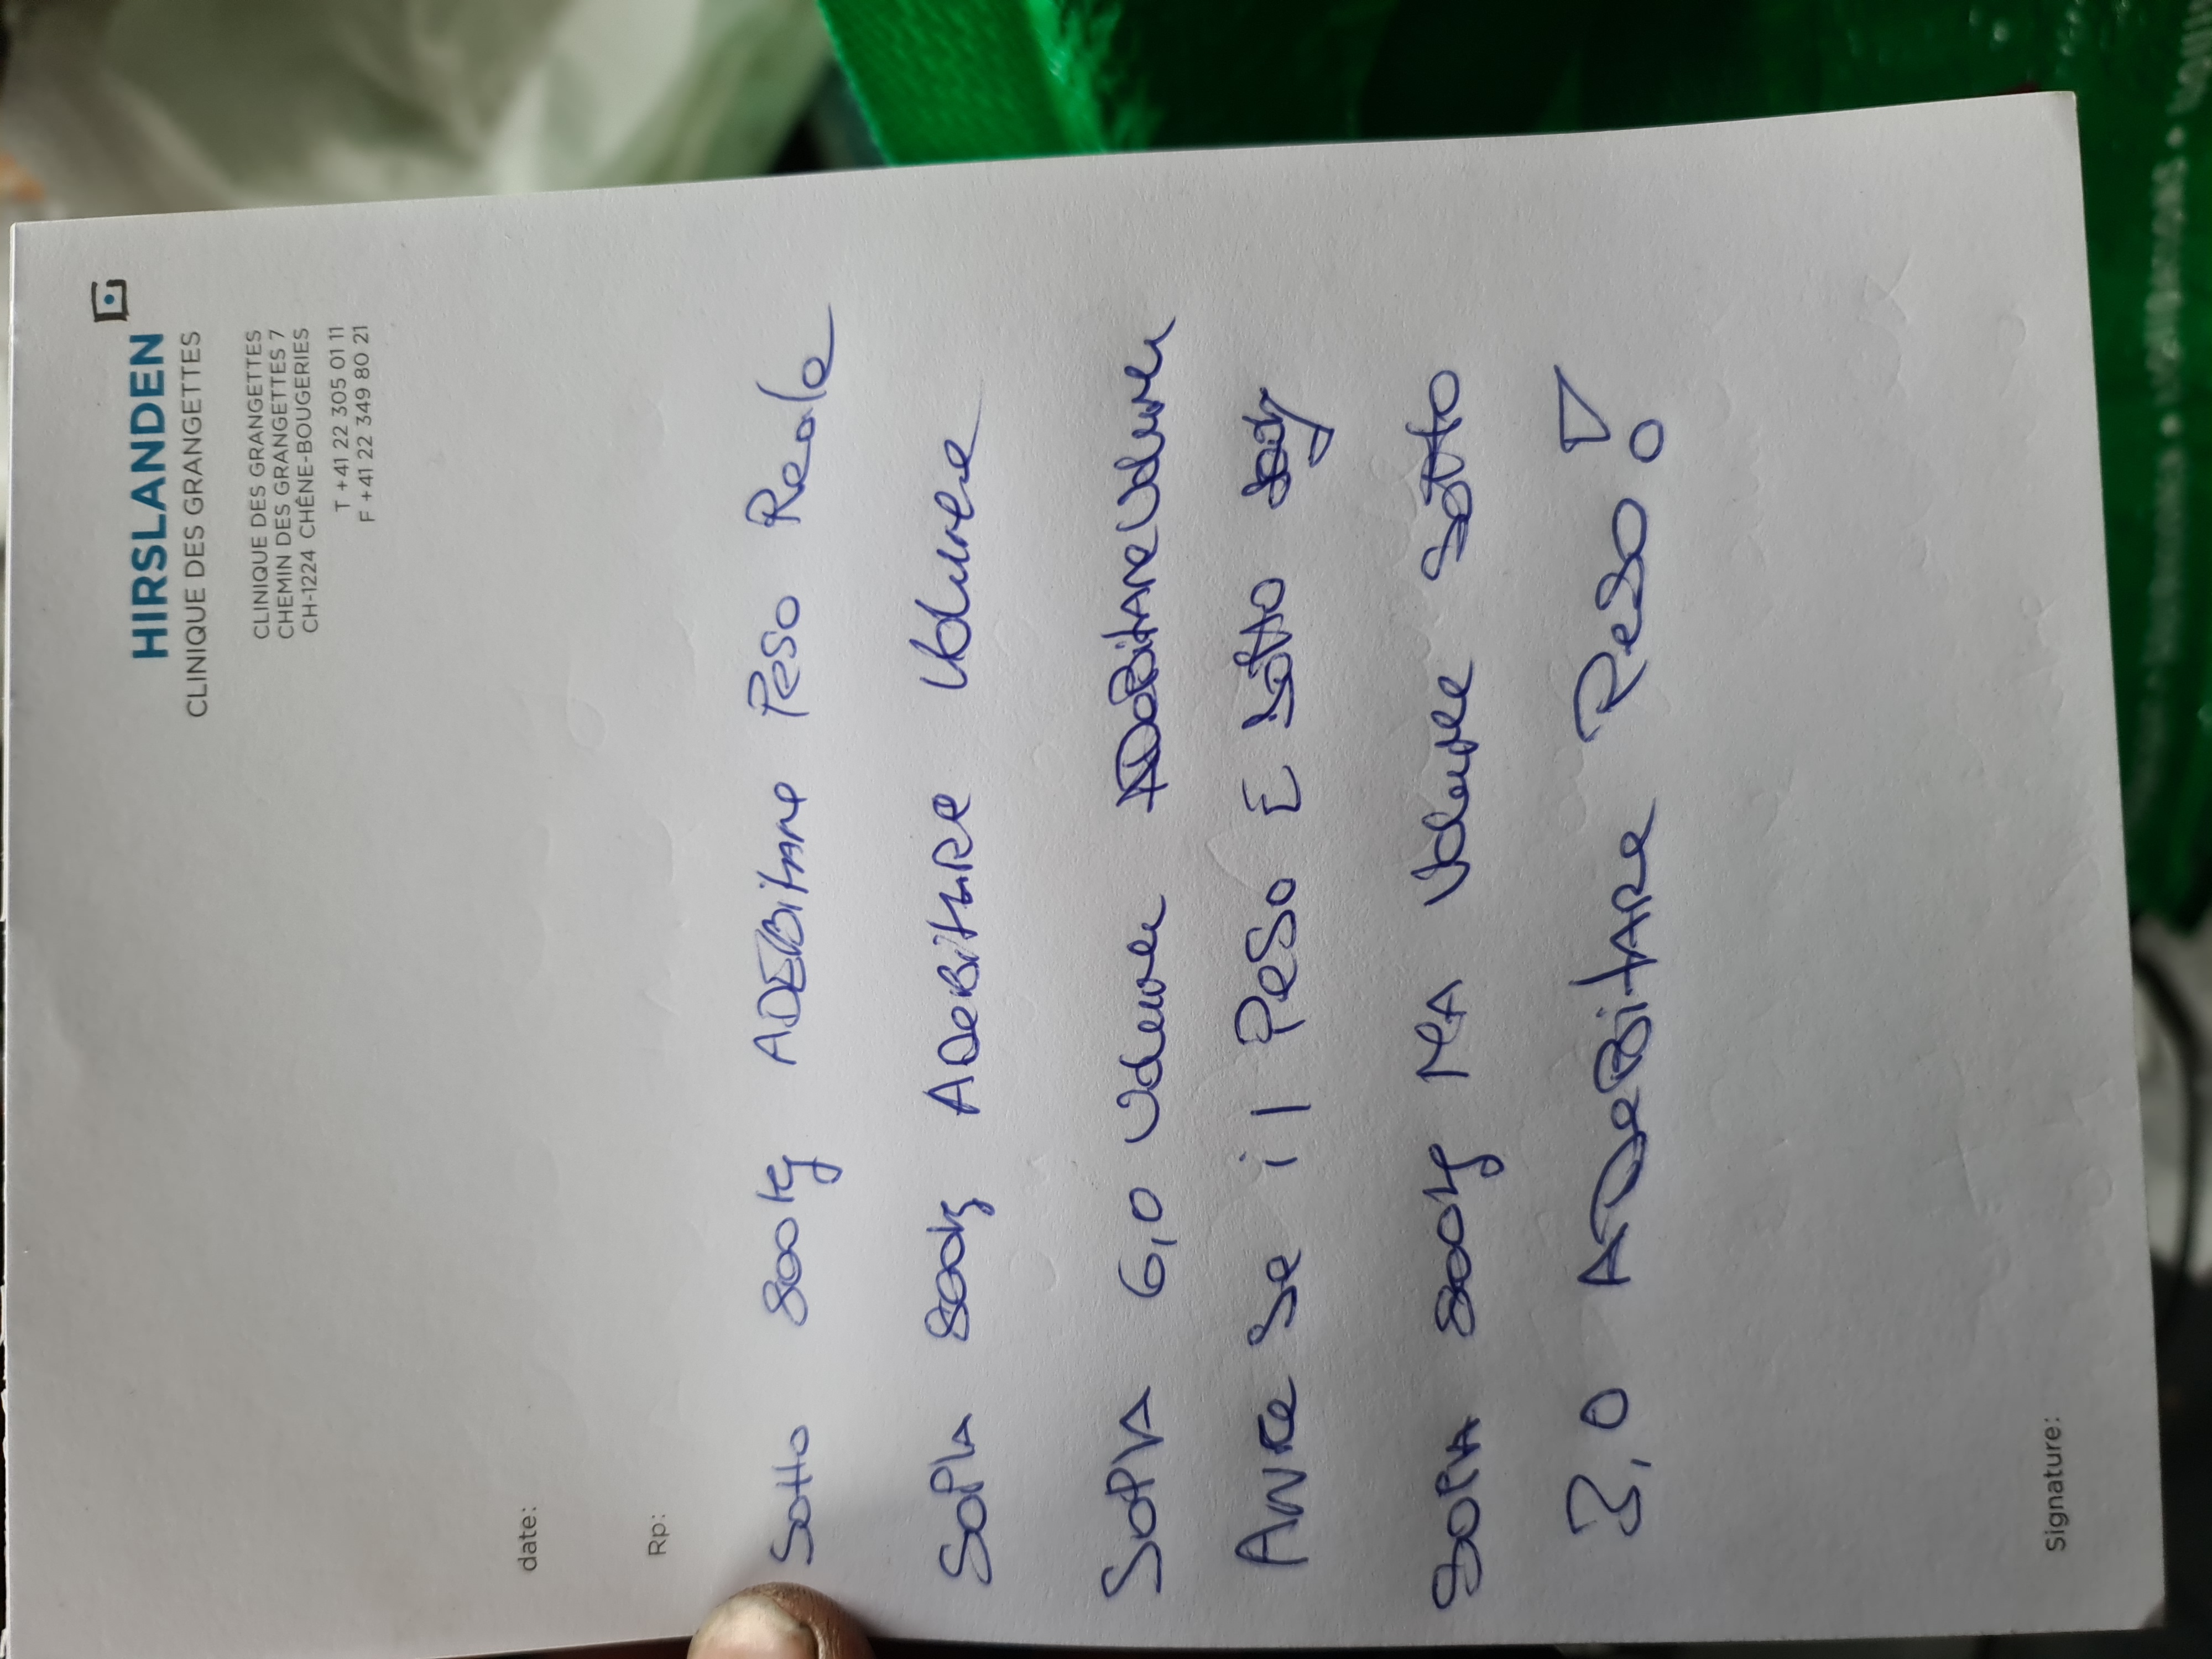 HIRSLANDEN
CLINIQUE DES GRANGETTES
CLINIQUE DES GRANGETTES
CHEMIN DES GRANGETTES 7
CH-1224 CHÊNE-BOUGERIES
T +41 22 305 01 11
F +41 22 349 80 21
date:
Rp:
Sotto 800kg ADEBitARe Peso Reale
SoPRA 800kg ADeBitARe Volume
SoPRA 6,0 Volume ADeBitARe Volume
ANCe Se il PeSo E Sotto 800kg
SoPRA 800kg MA Volume Sotto
3,0 ADeBitARe PeSo!
Signature: